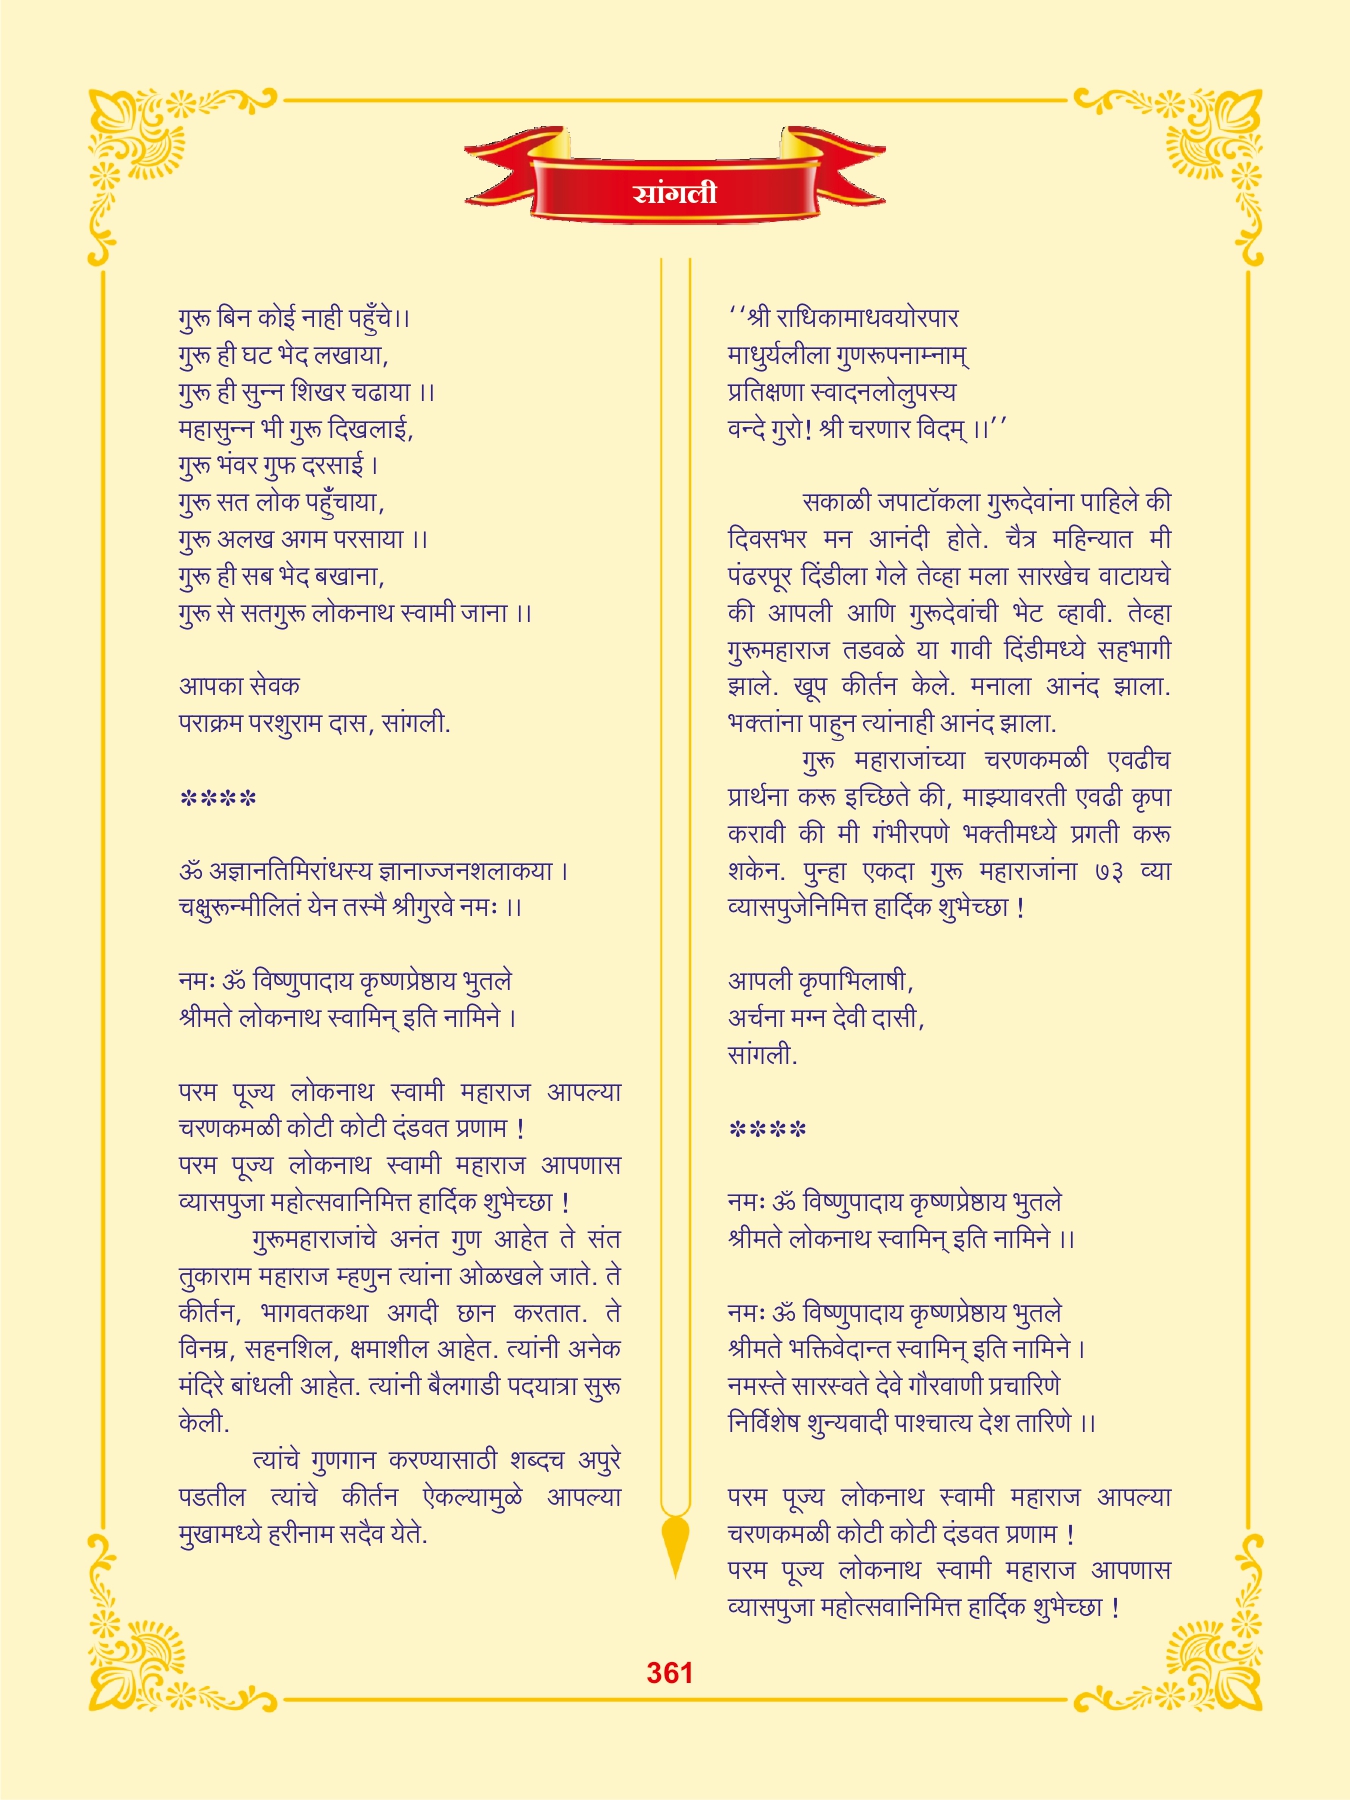 सांगली
गुरू बिन कोई नाही पहुँचे।।
गुरू ही घट भेद लखाया,
गुरू ही सुन्न शिखर चढाया ।।
महासुन्न भी गुरू दिखलाई,
गुरू भंवर गुफ दरसाई ।
गुरू सत लोक पहुँचाया,
गुरू अलख अगम परसाया ।।
गुरू ही सब भेद बखाना,
गुरू से सतगुरू लोकनाथ स्वामी जाना ।।
आपका सेवक
पराक्रम परशुराम दास, सांगली.
****
ॐ अज्ञानतिमिरांधस्य ज्ञानाज्जनशलाकया ।
चक्षुरून्मीलितं येन तस्मै श्रीगुरवे नमः ।।
नमः ॐ विष्णुपादाय कृष्णप्रेष्ठाय भुतले
श्रीमते लोकनाथ स्वामिन् इति नामिने ।
परम पूज्य लोकनाथ स्वामी महाराज आपल्या
चरणकमळी कोटी कोटी दंडवत प्रणाम !
परम पूज्य लोकनाथ स्वामी महाराज आपणास
व्यासपुजा महोत्सवानिमित्त हार्दिक शुभेच्छा !
गुरूमहाराजांचे अनंत गुण आहेत ते संत
तुकाराम महाराज म्हणुन त्यांना ओळखले जाते. ते
कीर्तन, भागवतकथा अगदी छान करतात. ते
विनम्र, सहनशिल, क्षमाशील आहेत. त्यांनी अनेक
मंदिरे बांधली आहेत. त्यांनी बैलगाडी पदयात्रा सुरू
केली.
त्यांचे गुणगान करण्यासाठी शब्दच अपुरे
पडतील त्यांचे कीर्तन ऐकल्यामुळे आपल्या
मुखामध्ये हरीनाम सदैव येते.
‘‘श्री राधिकामाधवयोरपार
माधुर्यलीला गुणरूपनाम्नाम्
प्रतिक्षणा स्वादनलोलुपस्य
वन्दे गुरो! श्री चरणार विदम् ।।’’
सकाळी जपाटॉकला गुरूदेवांना पाहिले की
दिवसभर मन आनंदी होते. चैत्र महिन्यात मी
पंढरपूर दिंडीला गेले तेव्हा मला सारखेच वाटायचे
की आपली आणि गुरूदेवांची भेट व्हावी. तेव्हा
गुरूमहाराज तडवळे या गावी दिंडीमध्ये सहभागी
झाले. खूप कीर्तन केले. मनाला आनंद झाला.
भक्तांना पाहुन त्यांनाही आनंद झाला.
गुरू महाराजांच्या चरणकमळी एवढीच
प्रार्थना करू इच्छिते की, माझ्यावरती एवढी कृपा
करावी की मी गंभीरपणे भक्तीमध्ये प्रगती करू
शकेन. पुन्हा एकदा गुरू महाराजांना ७३ व्या
व्यासपुजेनिमित्त हार्दिक शुभेच्छा !
आपली कृपाभिलाषी,
अर्चना मग्न देवी दासी,
सांगली.
****
नमः ॐ विष्णुपादाय कृष्णप्रेष्ठाय भुतले
श्रीमते लोकनाथ स्वामिन् इति नामिने ।।
नमः ॐ विष्णुपादाय कृष्णप्रेष्ठाय भुतले
श्रीमते भक्तिवेदान्त स्वामिन् इति नामिने ।
नमस्ते सारस्वते देवे गौरवाणी प्रचारिणे
निर्विशेष शुन्यवादी पाश्चात्य देश तारिणे ।।
परम पूज्य लोकनाथ स्वामी महाराज आपल्या
चरणकमळी कोटी कोटी दंडवत प्रणाम !
परम पूज्य लोकनाथ स्वामी महाराज आपणास
व्यासपुजा महोत्सवानिमित्त हार्दिक शुभेच्छा !
361